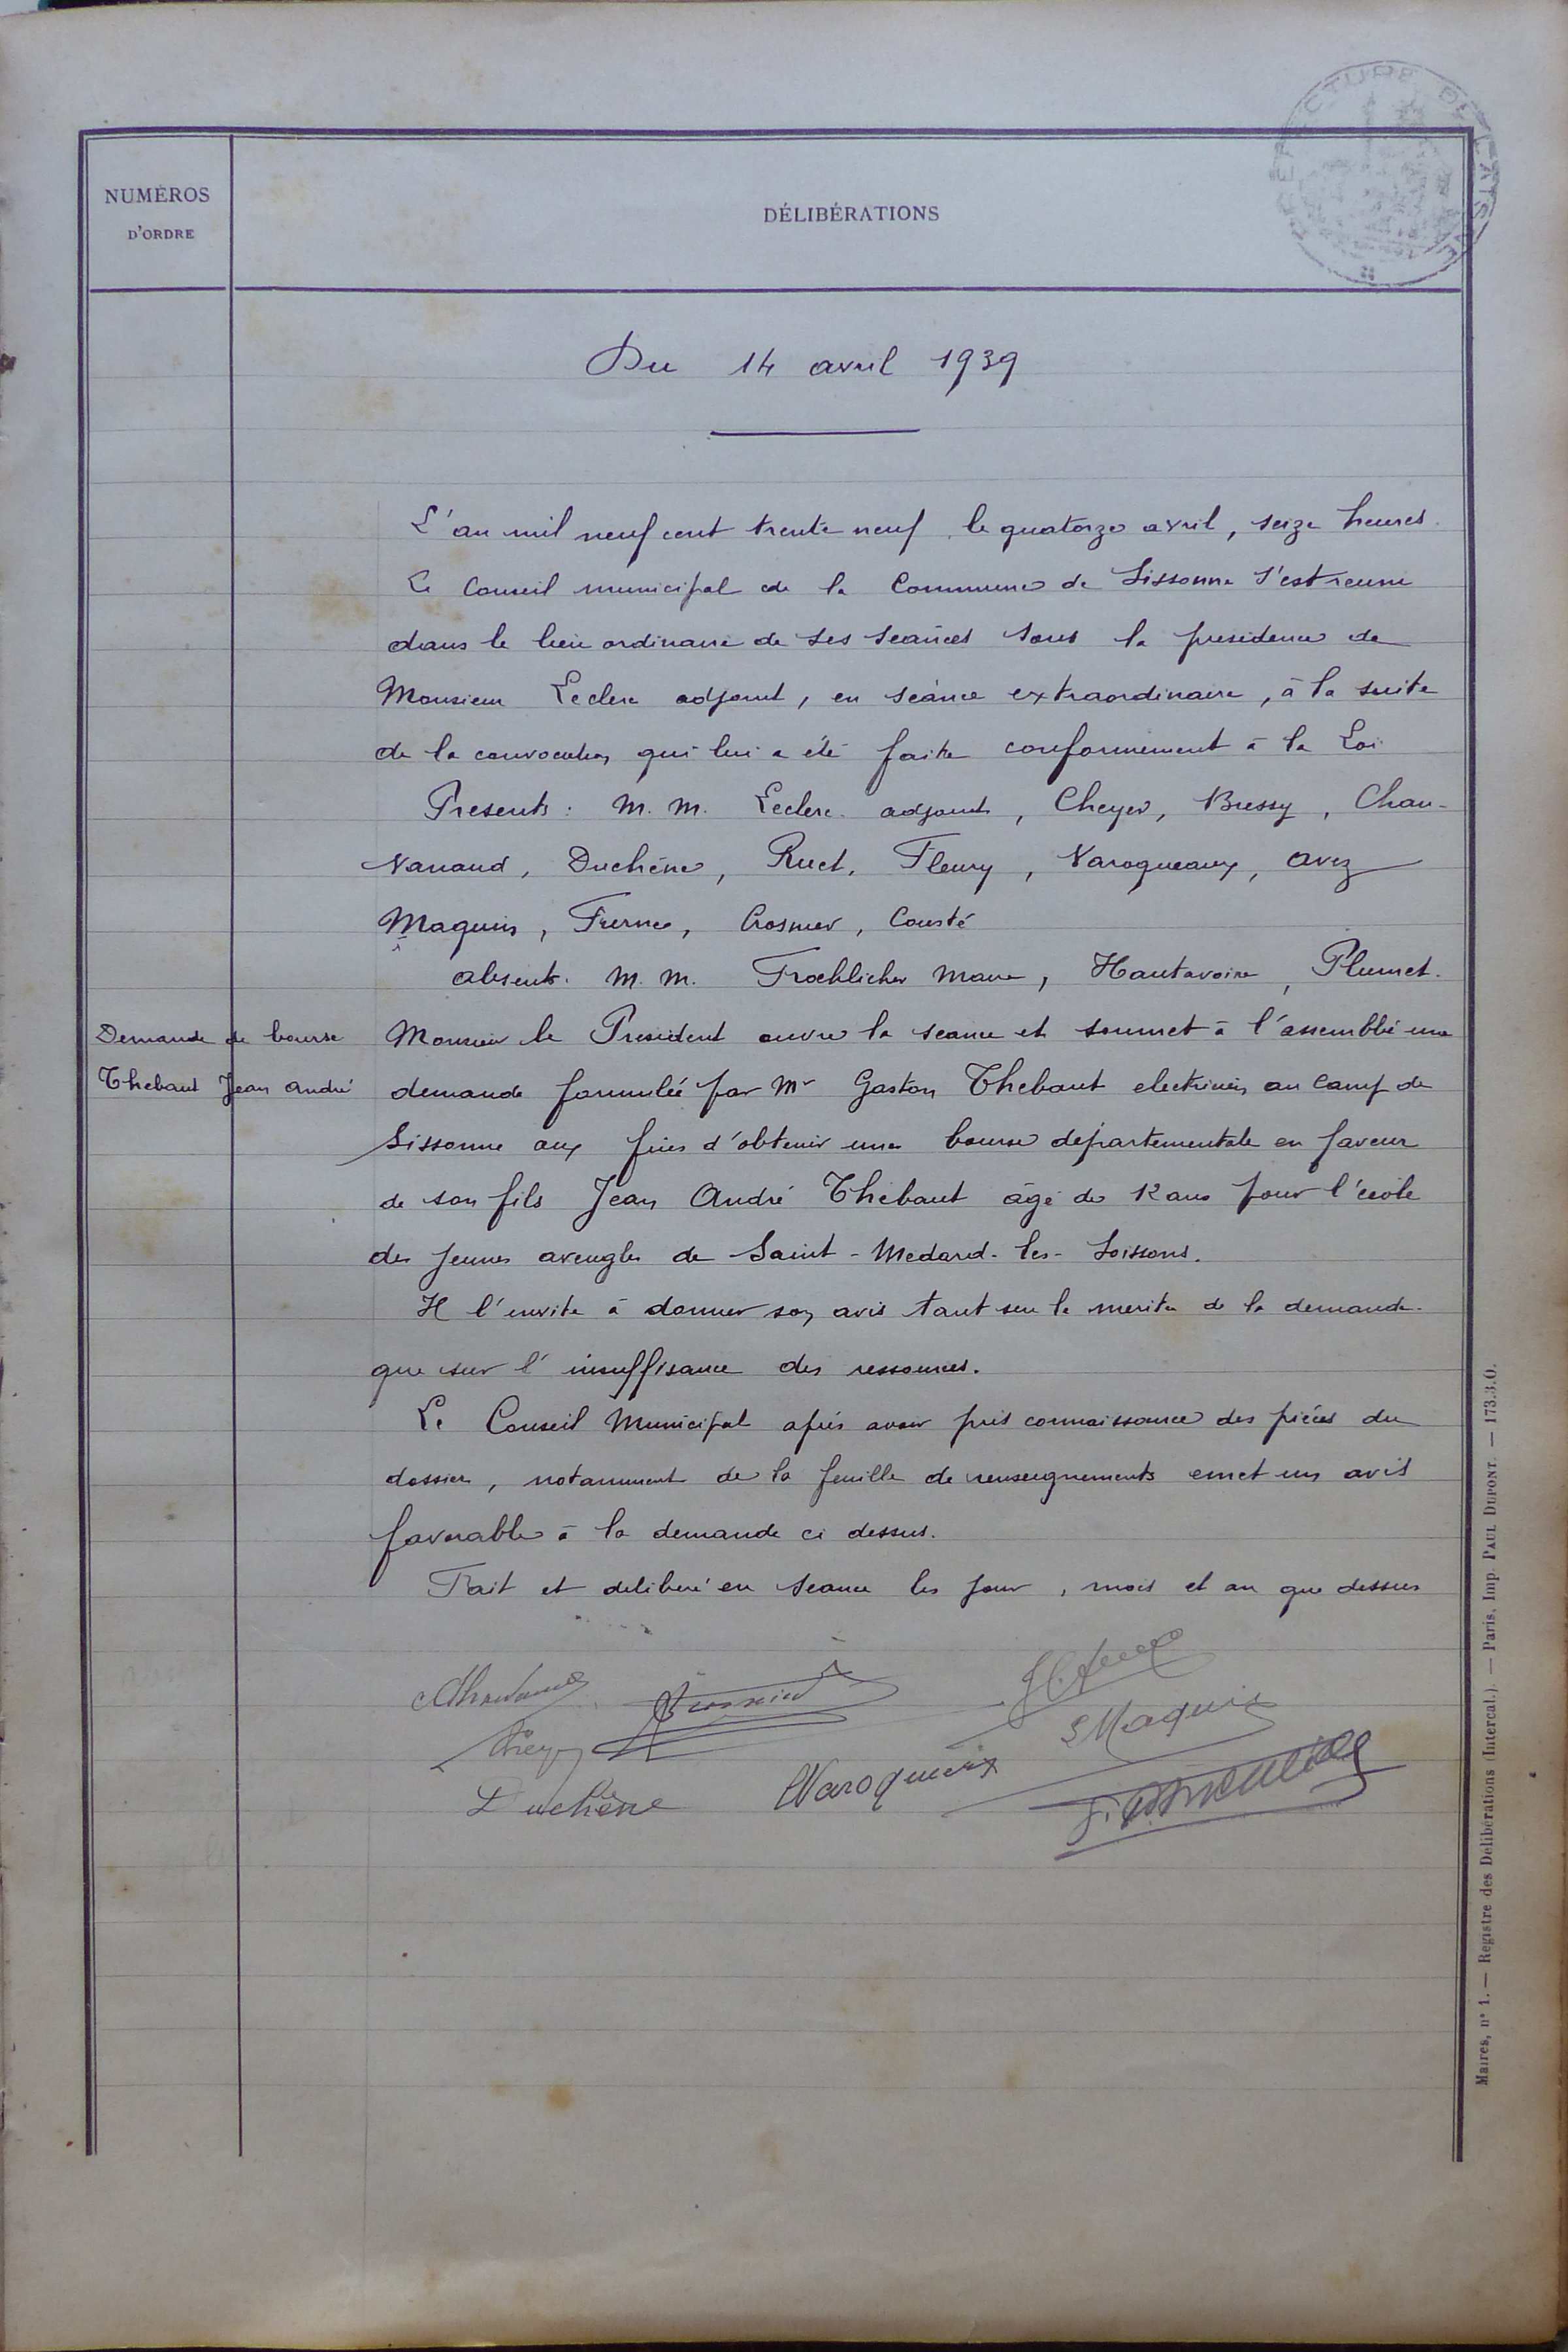 PRÉFECTURE DE L'AISNE
NUMÉROS
D'ORDRE
DÉLIBÉRATIONS
Du 14 avril 1939
L'an mil neuf cent trente neuf le quatorze avril, seize heures.
Le Conseil municipal de la Commune de Sissonne s'est reuni
dans le lieu ordinaire de ses seances sous la presidence de
Monsieur Leclerc adjoint, en séance extraordinaire, à la suite
de la convocation qui lui a été faite conformement à la Loi
Presents : M. M. Leclerc adjoint, Cheyer, Bressy, Chau-
Duchêne, Ruet, Fleury, Varoqueaux, Avez
Maquin, Crosnier, Cousté
absents. M. M. Froehlicher Maire, Hautavoine, Plumet.
Demande de bourse
Thebaut Jean André
Monsieur le President ouvre la seance et soumet à l'assemblée une
demande formulée par Mr Gaston Thebaut electricien au Camp de
Sissonne aux fins d'obtenir une bourse départementale en faveur
de son fils Jean André Thebaut âgé de 12 ans pour l'école
des Jeunes aveugles de Saint-Medard-les-Soissons.
Il l'invite à donner son avis tant sur le merite de la demande
que sur l'insuffisance des ressources.
Le Conseil Municipal après avoir pris connaissance des pièces du
dossier, notamment de la feuille de renseignements emet un avis
favorable à la demande ci dessus.
Fait et deliberé en seance les jour, mois et an que dessus
Maquin
Varoqueaux
Duchêne
Maires, n° 1. — Registre des Délibérations (Intercal.) — Paris, Imp. PAUL DUPONT. — 173.3.O.